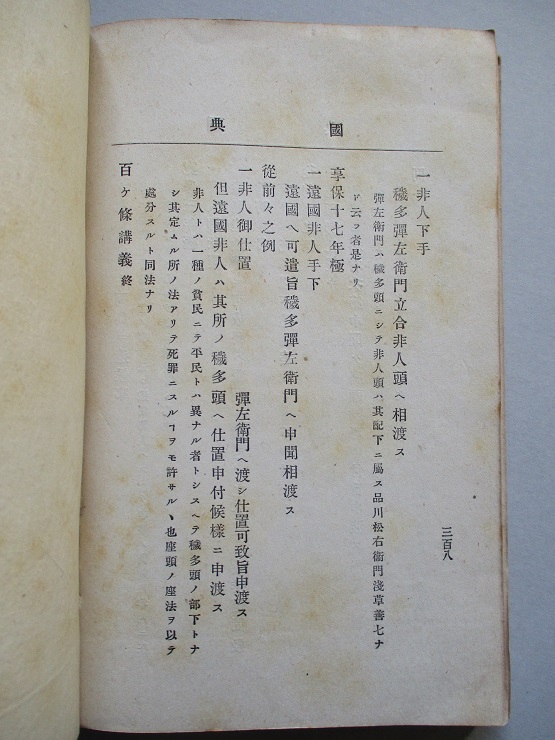 國典
三百八
一非人下手
穢多彈左衛門立合非人頭ヘ相渡ス
彈左衛門ハ穢多頭ニシテ非人頭ハ其配下ニ屬ス品川松右衛門淺草善七ナ
ド云フ者是ナリ
享保十七年極
一遠國非人手下
遠國ヘ可遣旨穢多彈左衛門ヘ申聞相渡ス
從前々之例
一非人御仕置
彈左衛門ヘ渡シ仕置可致旨申渡ス
但遠國非人ハ其所ノ穢多頭ヘ仕置申付候樣ニ申渡ス
非人トハ一種ノ貧民ニテ平民トハ異ナル者トシスヘテ穢多頭ノ部下トナ
シ其定ムル所ノ法アリテ死罪ニスルヿヲモ許サルヽ也座頭ノ座法ヲ以テ
處分スルト同法ナリ
百ケ條講義終